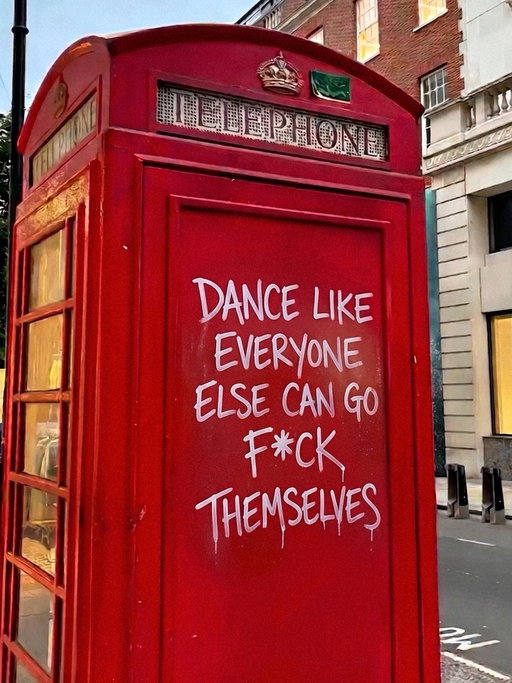 TELEPHONE
TELEPHONE
DANCE LIKE
EVERYONE
ELSE CAN GO
F*CK
THEMSELVES